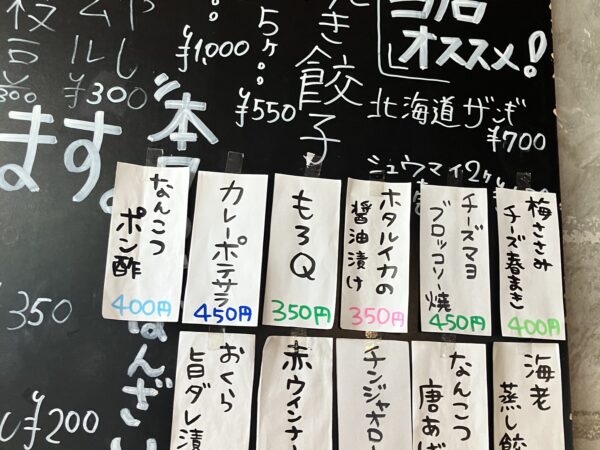 当店
オススメ!
北海道ザンギ
¥700
シュウマイ2ヶ
焼き餃子
5ヶ
¥550
¥1,000
¥300
ます。
本日
¥350
¥200
梅ささみ
チーズ春まき
400円
チーズマヨ
ブロッコリー焼
450円
ホタルイカの
醤油漬け
350円
もろQ
350円
カレーポテサラ
450円
なんこつ
ポン酢
400円
海老
蒸し餃
なんこつ
唐あげ
チンジャオロー
赤ウインナー
おくら
旨ダレ漬